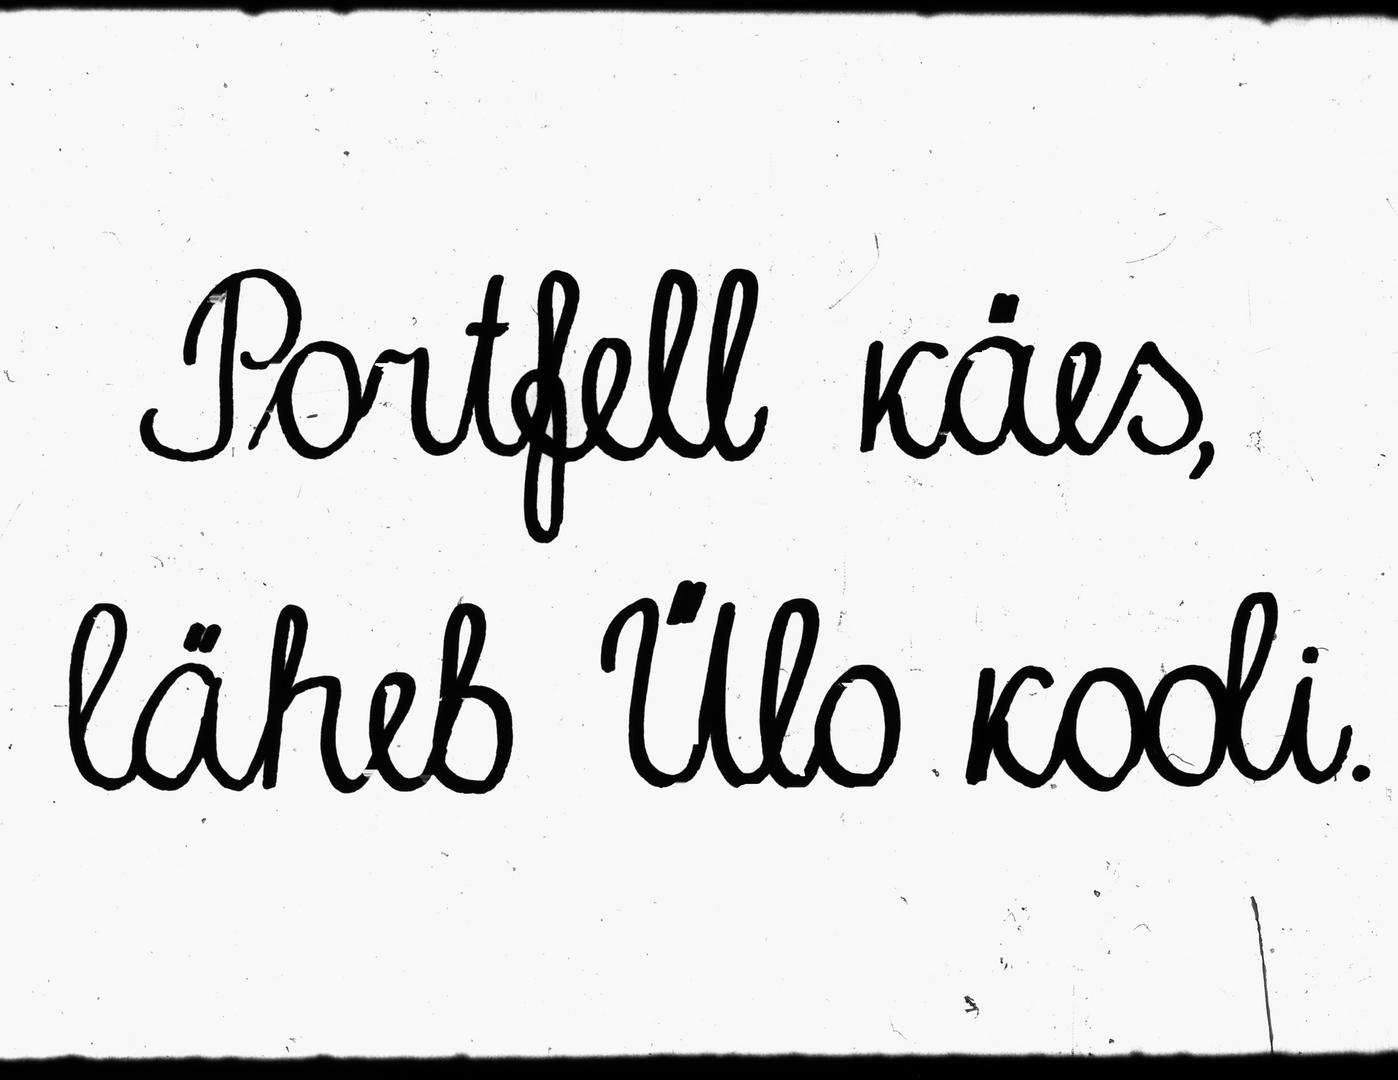 Portfell käes,
läheb Ülo kooli.